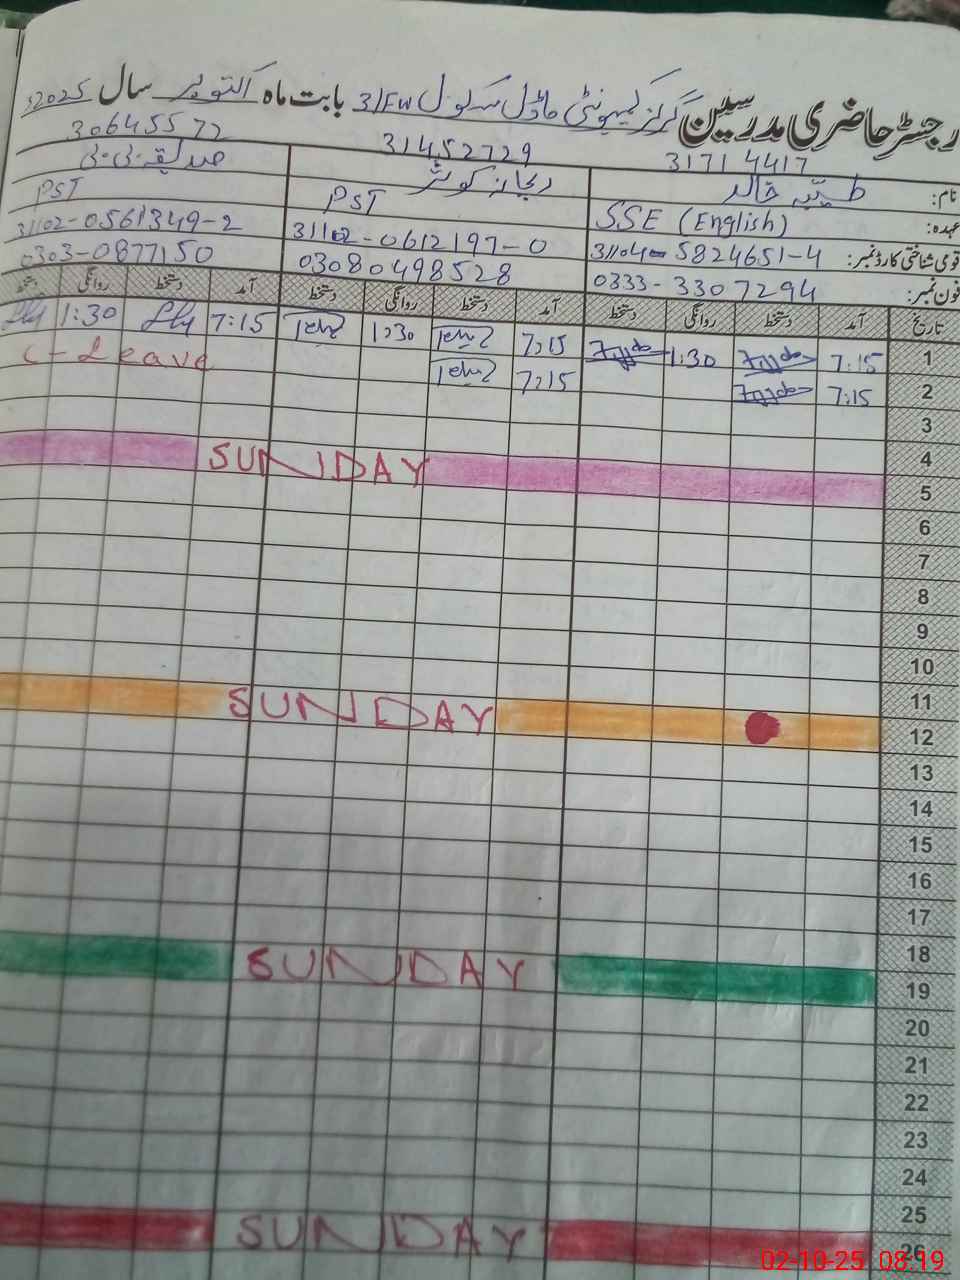 رجسٹر حاضری مدرسین گرلز کمیونٹی ماڈل سکول 31/EW بابت ماہ اکتوبر سال 2025ء
31714417 31452729 30645572
نام: طیبہ خالد ریحانہ کوثر صدیقہ بی بی
عہدہ: SSE (English) PST PST
قومی شناختی کارڈ نمبر: 31104-5824651-4 31102-0612197-0 31102-0561349-2
فون نمبر: 0333-3307294 03080498528 0303-0877150
تاریخ آمد دستخط روانگی دستخط آمد دستخط روانگی دستخط آمد دستخط روانگی دستخط
1 7:15 1:30 7:15 1:30 7:15 1:30
2 7:15 7:15 C-Leave
3
4
5 SUNDAY
6
7
8
9
10
11
12 SUNDAY
13
14
15
16
17
18
19 SUNDAY
20
21
22
23
24
25
26 SUNDAY
02-10-25 08:19